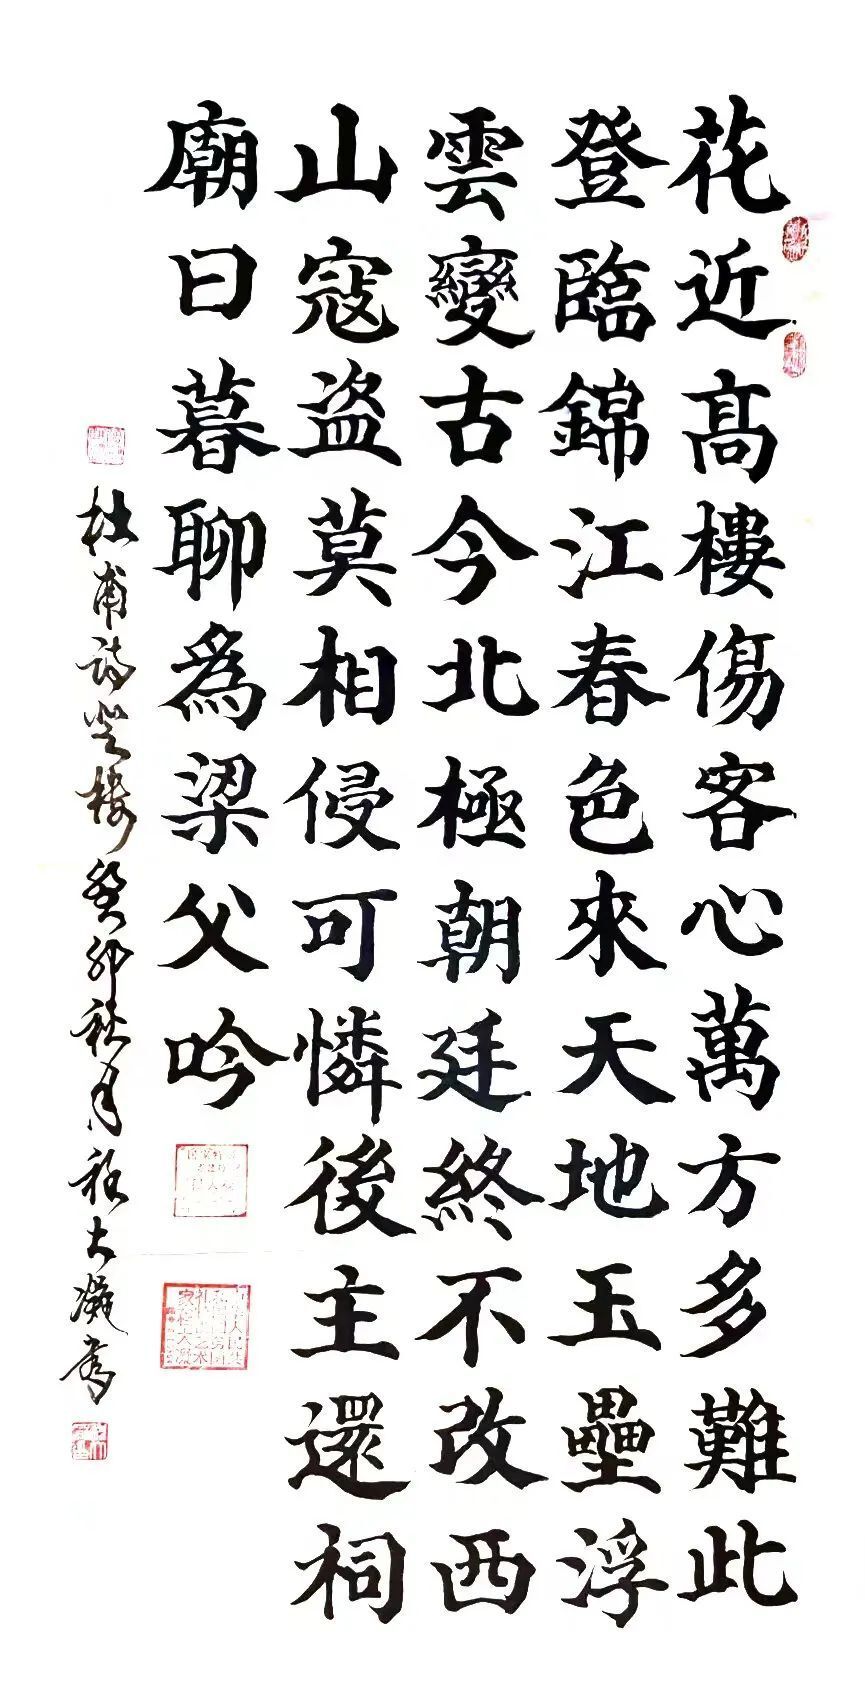 花近高樓傷客心萬方多難此
登臨錦江春色來天地玉壘浮
雲變古今北極朝廷終不改西
山寇盜莫相侵可憐後主還祠
廟日暮聊為梁父吟
杜甫詩登樓癸卯秋月程大凝書